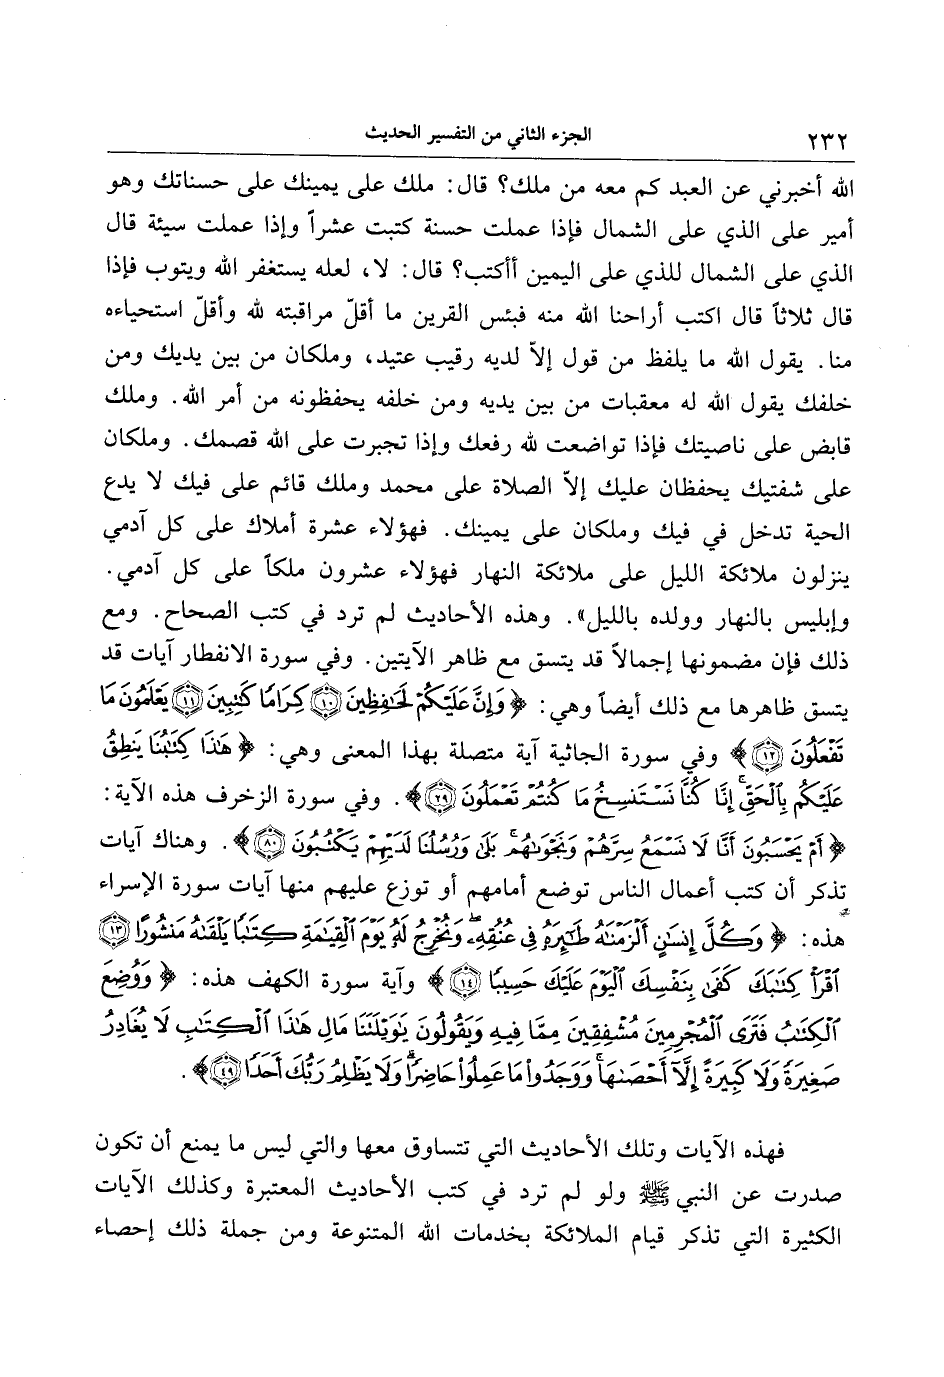 ٢٣٢ الجزء الثاني من التفسير الحديث
الله أخبرني عن العبد كم معه من ملك؟ قال: ملك على يمينك على حسناتك وهو
أمير على الذي على الشمال فإذا عملت حسنة كتبت عشراً وإذا عملت سيئة قال
الذي على الشمال للذي على اليمين أأكتب؟ قال: لا، لعله يستغفر الله ويتوب فإذا
قال ثلاثاً قال اكتب أراحنا الله منه فبئس القرين ما أقلّ مراقبته لله وأقلّ استحياءه
منا. يقول الله ما يلفظ من قول إلاّ لديه رقيب عتيد، وملكان من بين يديك ومن
خلفك يقول الله له معقبات من بين يديه ومن خلفه يحفظونه من أمر الله. وملك
قابض على ناصيتك فإذا تواضعت لله رفعك وإذا تجبرت على الله قصمك. وملكان
على شفتيك يحفظان عليك إلاّ الصلاة على محمد وملك قائم على فيك لا يدع
الحية تدخل في فيك وملكان على يمينك. فهؤلاء عشرة أملاك على كل آدمي
ينزلون ملائكة الليل على ملائكة النهار فهؤلاء عشرون ملكاً على كل آدمي.
وإبليس بالنهار وولده بالليل». وهذه الأحاديث لم ترد في كتب الصحاح. ومع
ذلك فإن مضمونها إجمالاً قد يتسق مع ظاهر الآيتين. وفي سورة الانفطار آيات قد
يتسق ظاهرها مع ذلك أيضاً وهي: ﴿وَإِنَّ عَلَيۡكُمۡ لَحَٰفِظِينَ ١٠ كِرَامٗا كَٰتِبِينَ ١١ يَعۡلَمُونَ مَا
تَفۡعَلُونَ ١٢﴾ وفي سورة الجاثية آية متصلة بهذا المعنى وهي: ﴿هَٰذَا كِتَٰبُنَا يَنطِقُ
عَلَيۡكُم بِٱلۡحَقِّۚ إِنَّا كُنَّا نَسۡتَنسِخُ مَا كُنتُمۡ تَعۡمَلُونَ ٢٩﴾. وفي سورة الزخرف هذه الآية:
﴿أَمۡ يَحۡسَبُونَ أَنَّا لَا نَسۡمَعُ سِرَّهُمۡ وَنَجۡوَىٰهُمۚ بَلَىٰ وَرُسُلُنَا لَدَيۡهِمۡ يَكۡتُبُونَ ٨٠﴾. وهناك آيات
تذكر أن كتب أعمال الناس توضع أمامهم أو توزع عليهم منها آيات سورة الإسراء
هذه: ﴿وَكُلَّ إِنسَٰنٍ أَلۡزَمۡنَٰهُ طَٰٓئِرَهُۥ فِي عُنُقِهِۦۖ وَنُخۡرِجُ لَهُۥ يَوۡمَ ٱلۡقِيَٰمَةِ كِتَٰبٗا يَلۡقَىٰهُ مَنشُورًا ١٣
ٱقۡرَأۡ كِتَٰبَكَ كَفَىٰ بِنَفۡسِكَ ٱلۡيَوۡمَ عَلَيۡكَ حَسِيبٗا ١٤﴾ وآية سورة الكهف هذه: ﴿وَوُضِعَ
ٱلۡكِتَٰبُ فَتَرَى ٱلۡمُجۡرِمِينَ مُشۡفِقِينَ مِمَّا فِيهِ وَيَقُولُونَ يَٰوَيۡلَتَنَا مَالِ هَٰذَا ٱلۡكِتَٰبِ لَا يُغَادِرُ
صَغِيرَةٗ وَلَا كَبِيرَةً إِلَّآ أَحۡصَىٰهَاۚ وَوَجَدُواْ مَا عَمِلُواْ حَاضِرٗاۗ وَلَا يَظۡلِمُ رَبُّكَ أَحَدٗا ٤٩﴾.
فهذه الآيات وتلك الأحاديث التي تتساوق معها والتي ليس ما يمنع أن تكون
صدرت عن النبي ﷺ ولو لم ترد في كتب الأحاديث المعتبرة وكذلك الآيات
الكثيرة التي تذكر قيام الملائكة بخدمات الله المتنوعة ومن جملة ذلك إحصاء